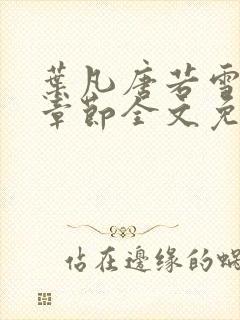 葉凡唐若雪
章節全文免
佔在邊緣的蝸